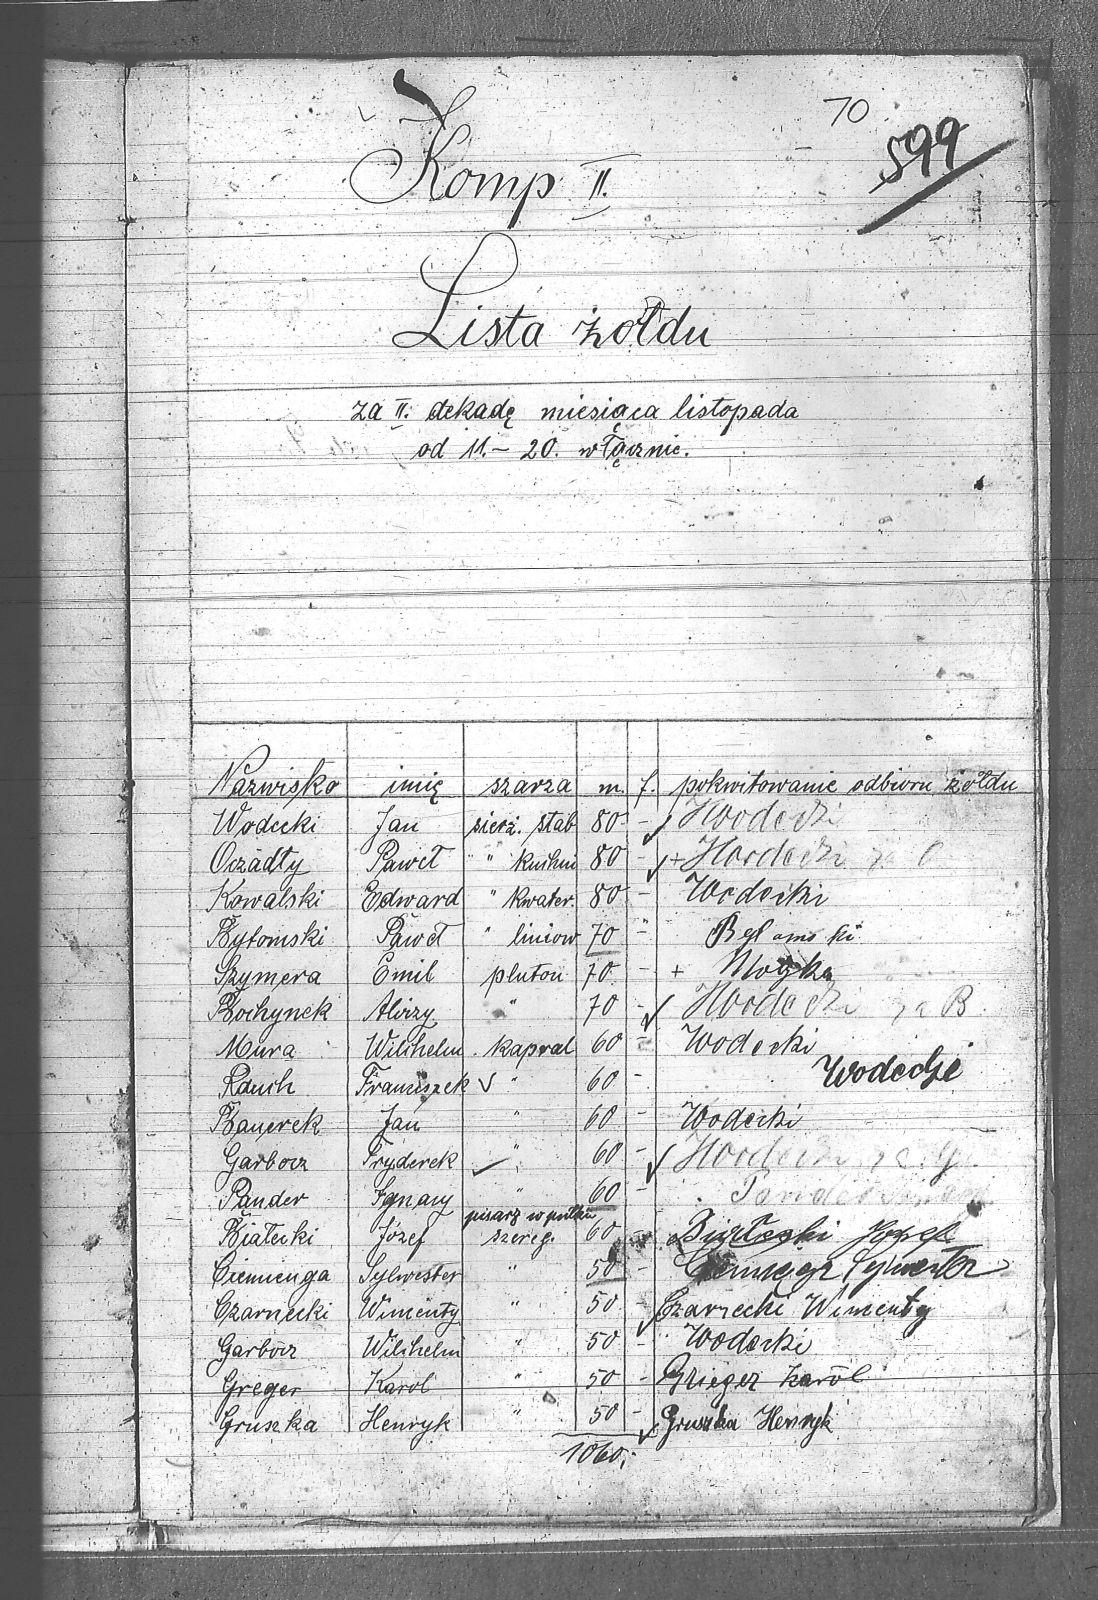 70
599
Komp II.
Lista żołdu
za II. dekadę miesiąca listopada
od 11.- 20. włącznie.
Nazwisko imię szarża m. f. pokwitowanie odbioru żołdu
Wodecki Jan sierż. stab 80 - Wodecki
Oczadły Paweł " kuchni 80 - + Wodecki za O
Kowalski Edward " kwater. 80 - Wodecki
Bytomski Paweł " liniow 70 -
Szymera Emil pluton 70 - +
Bochynek Alojzy " 70 - Wodecki za B.
Mura Wilhelm kapral 60 - Wodecki
Rduch Franciszek " 60 - Wodecki
Banerek Jan " 60 - Wodecki
Garbocz Fryderek " 60 - Wodecki za G.
Pander Ignacy " 60 -
pisarz w pułku
Białecki Józef szereg. 60 - Białecki Józef
Ciemienga Sylwester " 50 - Ciemięga Sylwester
Czarnecki Wincenty " 50 - Czarnecki Wincenty
Garbocz Wilhelm " 50 - Wodecki
Greger Karol " 50 - Grieger Karol
Gruszka Henryk " 50 - Gruszka Henryk
1060,-